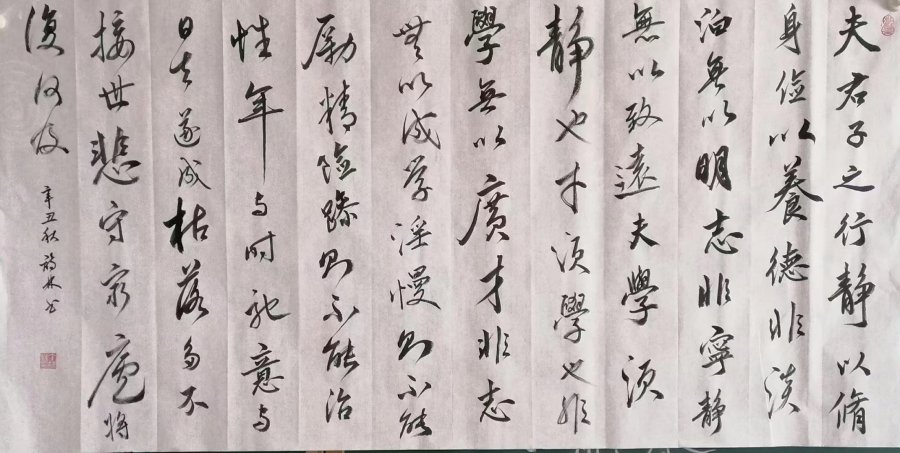 夫君子之行静以脩
身俭以養德非淡
泊无以明志非寧静
無以致遠夫學須
静也才須學也非
學无以廣才非志
無以成学淫慢则不能
励精险躁则不能治
性年与时驰意与
日去遂成枯落多不
接世悲守穷廬将
復何及
辛丑秋